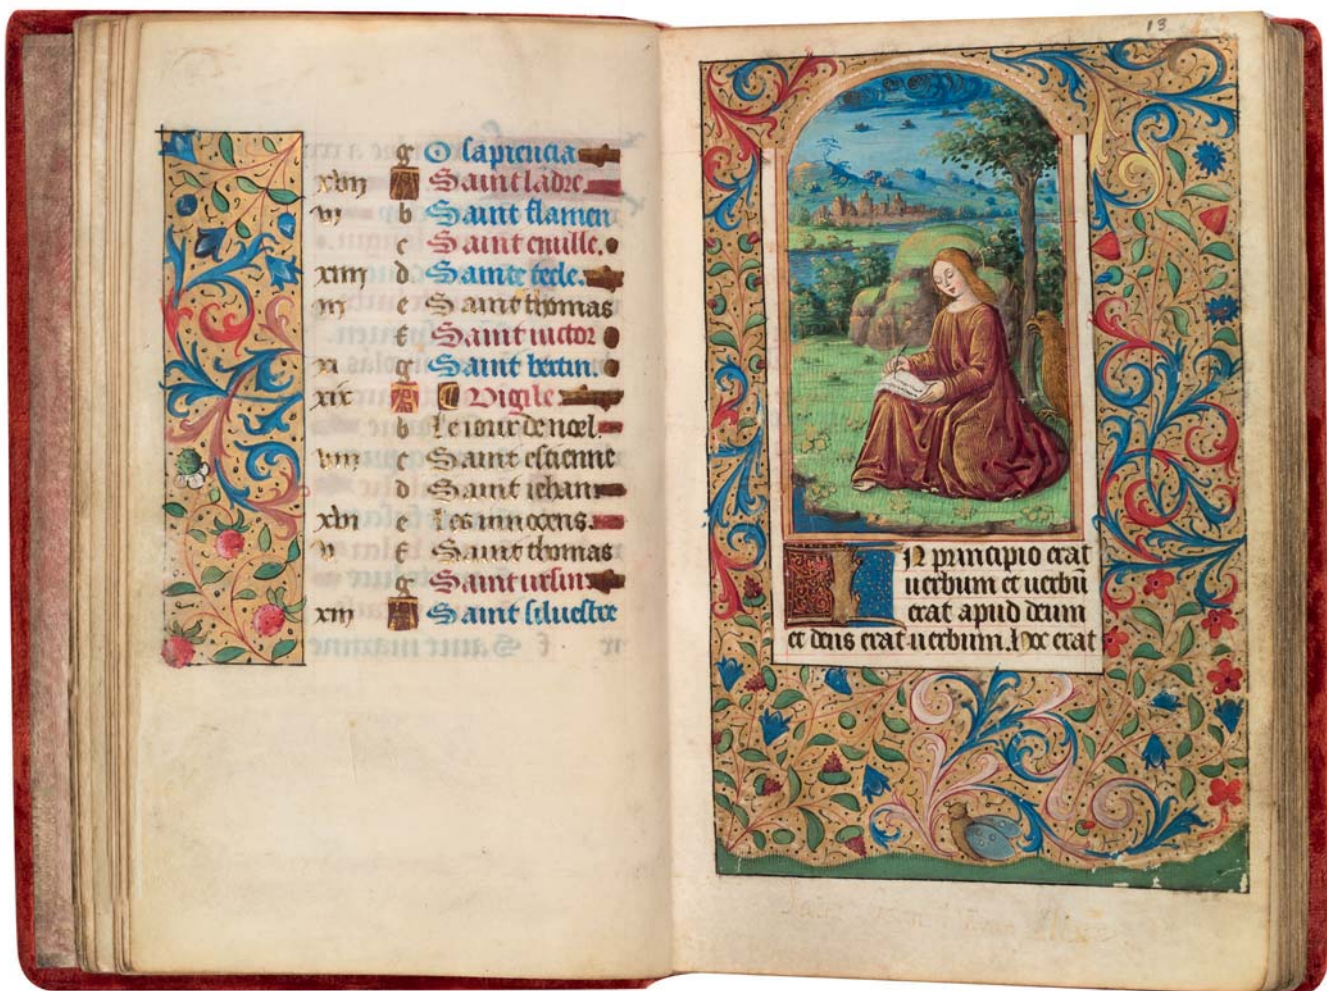 g O sapiencia
xvij A Saint ladre.
vj b Saint flamen
c Saint emille.
xiiij d Sainte tecle.
iij e Saint thomas
f Saint victor
xi g Saint bertin.
xix A Vigile
b Le iour de noel.
viij c Saint estienne
d Saint iehan
xvi e Les innocens.
v f Saint thomas
g Saint ursin
xiij A Saint siluestre
13
IN principio erat
uerbum et uerbū
erat apud deum
et deus erat uerbum. Hoc erat